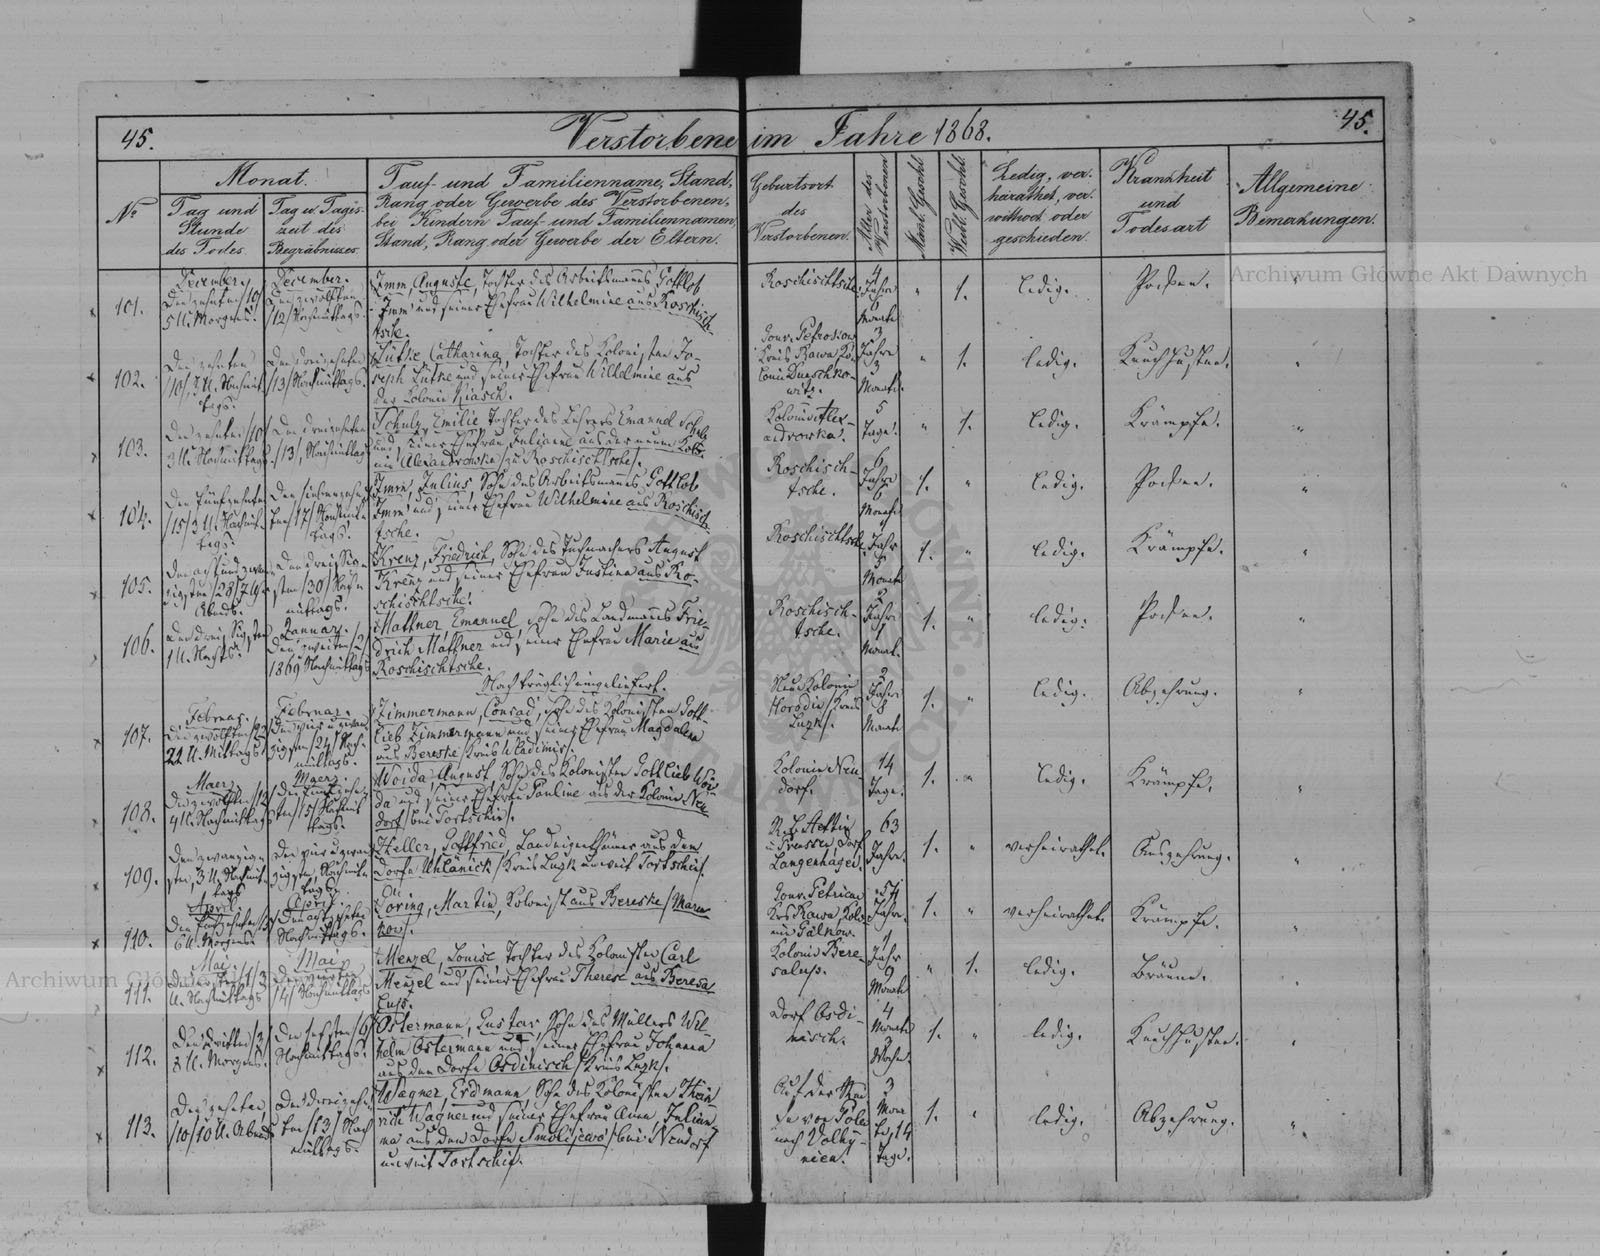 45.
Verstorbene im Jahre 1868.
45.
No
Monat.
Tag und Stunde des Todes.
Tag u. Tageszeit des Begräbnisses.
Tauf- und Familienname, Stand,
Rang oder Gewerbe des Verstorbenen,
bei Kindern Tauf- und Familiennamen,
Stand, Rang oder Gewerbe der Eltern.
Geburtsort
des
Verstorbenen.
Alter des Verstorbenen
Männl. Geschl.
Weibl. Geschl.
Ledig, ver-
heirathet, ver-
wittwet oder
geschieden.
Krankheit
und
Todesart
Allgemeine
Bemerkungen.
101.
December
Den zehnten /10/
5 U. Morgens.
December.
Den zwölften
/12/ Nachmittags.
Imm, Auguste, Tochter des Arbeitsmanns Gottlob
Imm und seiner Ehefrau Wilhelmine aus Roschisch-
tsche.
Roschischtsche.
4
Jahre
6
Monate
"
1.
ledig.
Pocken.
"
102.
Den zehnten
/10/, 3 U. Nachmit-
tags.
Den dreizehnten
/13/ Nachmittags.
Lütke, Catharina, Tochter des Kolonisten Jo-
seph Lutke und seiner Ehefrau Wilhelmine aus
der Colonie Kiasch.
Gouv. Petrokow
Kreis Rawa Ko-
lonie
3
Jahre
3
Monate.
"
1.
ledig.
Keuchhusten.
"
103.
Den zehnten /10/
3 U. Nachmittags.
Den dreizehnten
/13/, Nachmittags
Schulz, Emilie Tochter des Lehrers Emanuel Schulz
und seiner Ehefrau Juliane aus der neuen Kolo-
nie Alexandrowka /zu Roschischtsche/.
Kolonie Alex-
androwka.
5
Tage.
"
1.
ledig.
Krämpfe.
"
104.
Den fünfzehnten
/15/ 3 U. Nachmit-
tags.
Den siebenzehn-
ten /17/ Nachmit-
tags.
Imm, Julius Sohn des Arbeitsmanns Gottlob
Imm und seiner Ehefrau Wilhelmine aus Roschisch-
tsche.
Roschisch-
tsche.
6
Jahre
6
Monate
1.
"
ledig.
Pocken.
"
105.
Den acht und zwan-
zigsten /28/ 7 Uhr
Abends.
Den dreißig-
sten /30/ Nach-
mittags.
Krenz, Friedrich, Sohn des Tuchmachers August
Krenz und seiner Ehefrau Justine aus Ro-
schischtsche.
Roschischtsche
1
Jahr
5
Monate
1.
"
ledig.
Krämpfe.
"
106.
Den dreißigsten
1 U. Nachts.
Januar.
Den zweiten /2/
1869 Nachmittags
Mattner, Emanuel, Sohn des Landmanns Frie-
drich Mattner und seiner Ehefrau Marie aus
Roschischtsche.
Roschisch-
tsche.
2
Jahre
1
Monat.
1.
"
ledig.
Pocken.
"
Nachträglich eingeliefert.
107.
Februar.
22 U. Mittags.
Februar.
Den vier u. zwan-
zigsten /24/ Nach-
mittags.
Zimmermann, Conrad, Sohn des Kolonisten Gott-
lieb Zimmermann und seiner Ehefrau Magdalena
aus Bereske /Kreis Wladimir/.
Neu Kolonie
Horodie /Kreis
Luzk/.
2
Jahre
8
Monate
1.
"
ledig.
Abzehrung.
"
108.
Maerz.
Den zwölften /12/
4 U. Nachmittags
Maerz.
Den fünfzehn-
ten /15/ Nachmit-
tags.
Woida, August, Sohn des Kolonisten Gottlieb Woi-
da und seiner Ehefrau Pauline aus der Kolonie Neu-
dorf /bei Tortschin/.
Kolonie Neu-
dorf.
14
Tage.
1.
"
ledig.
Krämpfe.
"
109.
Den zwanzig-
sten, 3 U. Nachmit-
tags
Den vier u. zwan-
zigsten, Nachmit-
tags.
Heller, Gottfried, Landeigenthümer aus dem
Dorfe Uhlanick /Kreis Luzk unweit Tortschin/.
R. B. Stettin
in Preussen, Dorf
Langenhagen.
63
Jahre.
1.
"
verheirathet.
Auszehrung.
"
110.
April
Den fünfzehnten /15/
6 U. Morgens.
April.
Den achtzehnten
Nachmittags.
Döring, Martin, Kolonist aus Bereske
Gouv. Petrikau
Krs Rawa, Kolo-
nie Galkow.
54
Jahre.
1.
"
verheirathet.
Krämpfe.
"
111.
Mai
Den ersten /1/ 3
U. Nachmittags
Mai.
Den vierten
/4/ Nachmittags
Menzel, Louise Tochter des Kolonisten Carl
Menzel und seiner Ehefrau Therese aus Beresa-
luss.
Kolonie Bere-
saluss.
1
Jahr
9
Monate
"
1.
ledig.
Bräune.
"
112.
Den dritten /3/
3 U. Morgens.
Den sechsten /6/
Nachmittags.
Ostermann, Gustav Sohn des Müllers Wil-
helm Ostermann und seiner Ehefrau Johanna
aus dem Dorfe Osdinisch /Kreis Luzk/.
Dorf Osdi-
nisch.
4
Monate
3
Wochen.
1.
"
ledig.
Keuchhusten.
"
113.
Den zehnten
/10/ 10 U. Abends
Den dreizehn-
ten /13/ Nach-
mittags.
Wagner, Erdmann, Sohn des Kolonisten Hein-
rich Wagner und seiner Ehefrau Anna Julian-
na aus dem Dorfe Smolijewo /bei Neudorf
unweit Tortschin.
Auf der Rei-
se von Polen
nach Volhy-
nien.
3
Mona-
te, 14
Tage.
1.
"
ledig.
Abzehrung.
"
Archiwum Główne Akt Dawnych
Archiwum Główne Akt Dawnych